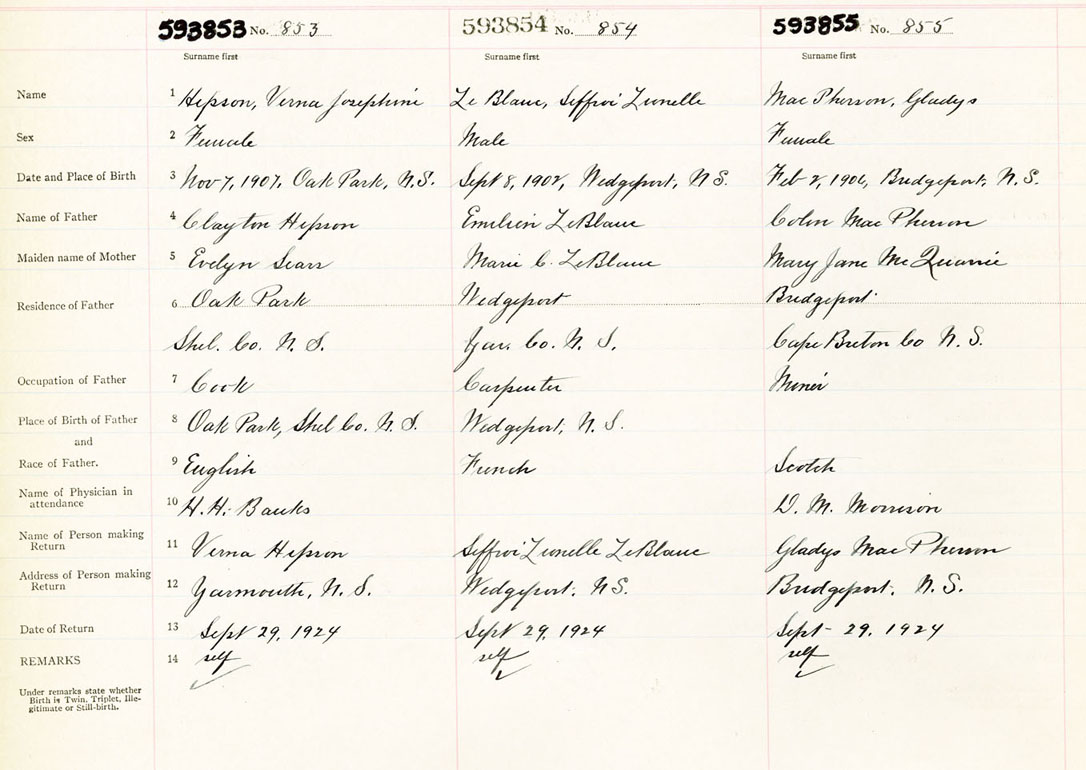 593853 No. 853 593854 No. 854 593855 No. 855
Surname first Surname first Surname first
Name 1 Hipson, Verna Josephine Le Blanc, Seffroi Lionelle Mac Pherson, Gladys
Sex 2 Female Male Female
Date and Place of Birth 3 Nov 7, 1907, Oak Park, N.S. Sept 8, 1902, Wedgeport, N S. Feb 2, 1906, Bridgeport, N. S.
Name of Father 4 Clayton Hipson Emilien LeBlanc Colin Mac Pherson
Maiden name of Mother 5 Evelyn Sears Marie C. LeBlanc Mary Jane Mc Quarrie
Residence of Father 6 Oak Park Wedgeport Bridgeport
Shel. Co. N. S. Yar. Co. N. S. Cape Breton Co N. S.
Occupation of Father 7 Cook Carpenter Miner
Place of Birth of Father 8 Oak Park, Shel Co. N. S. Wedgeport, N. S.
and
Race of Father. 9 English French Scotch
Name of Physician in
attendance 10 H. H. Banks D. M. Morrison
Name of Person making
Return 11 Verna Hipson Seffroi Lionelle LeBlanc Gladys Mac Pherson
Address of Person making
Return 12 Yarmouth, N. S. Wedgeport, N S. Bridgeport, N. S.
Date of Return 13 Sept 29, 1924 Sept 29, 1924 Sept- 29, 1924
REMARKS 14 self self self
Under remarks state whether
Birth is Twin, Triplet, Ille-
gitimate or Still-birth.